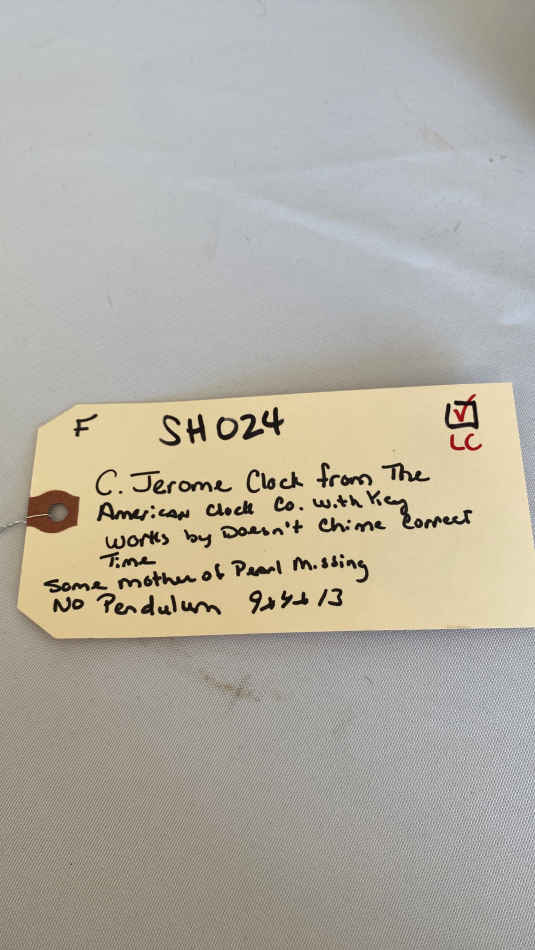 F SH024
LC
C. Jerome Clock from The
American Clock Co. With Key
works by Doesn't Chime Correct
Time
Some mother of Pearl Missing
No Pendulum 9x4x13